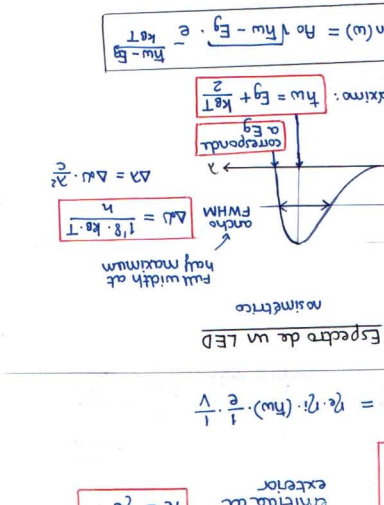 exterior
= ηe·ηi·(ħω)·1/e·1/V
Espectro de un LED
no simétrico
Full width at
half maximum
ancho
FWHM
Δν = 1'8·kBT/h
Δλ = Δν·λ²/c
λ
corresponde
a Eg
ħω = Eg + kBT/2
(ω) = A₀ √ħω − Eg · e^−(ħω − Eg)/kBT